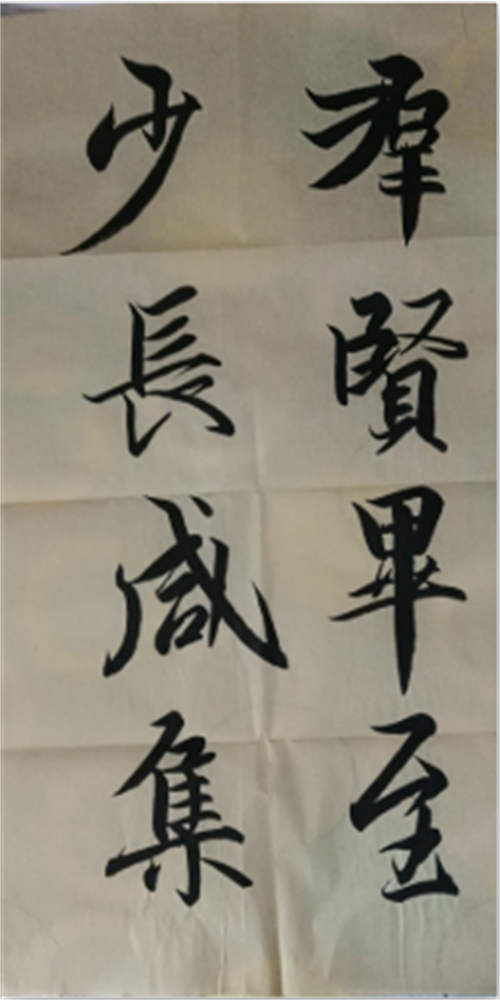 羣賢畢至
少長咸集